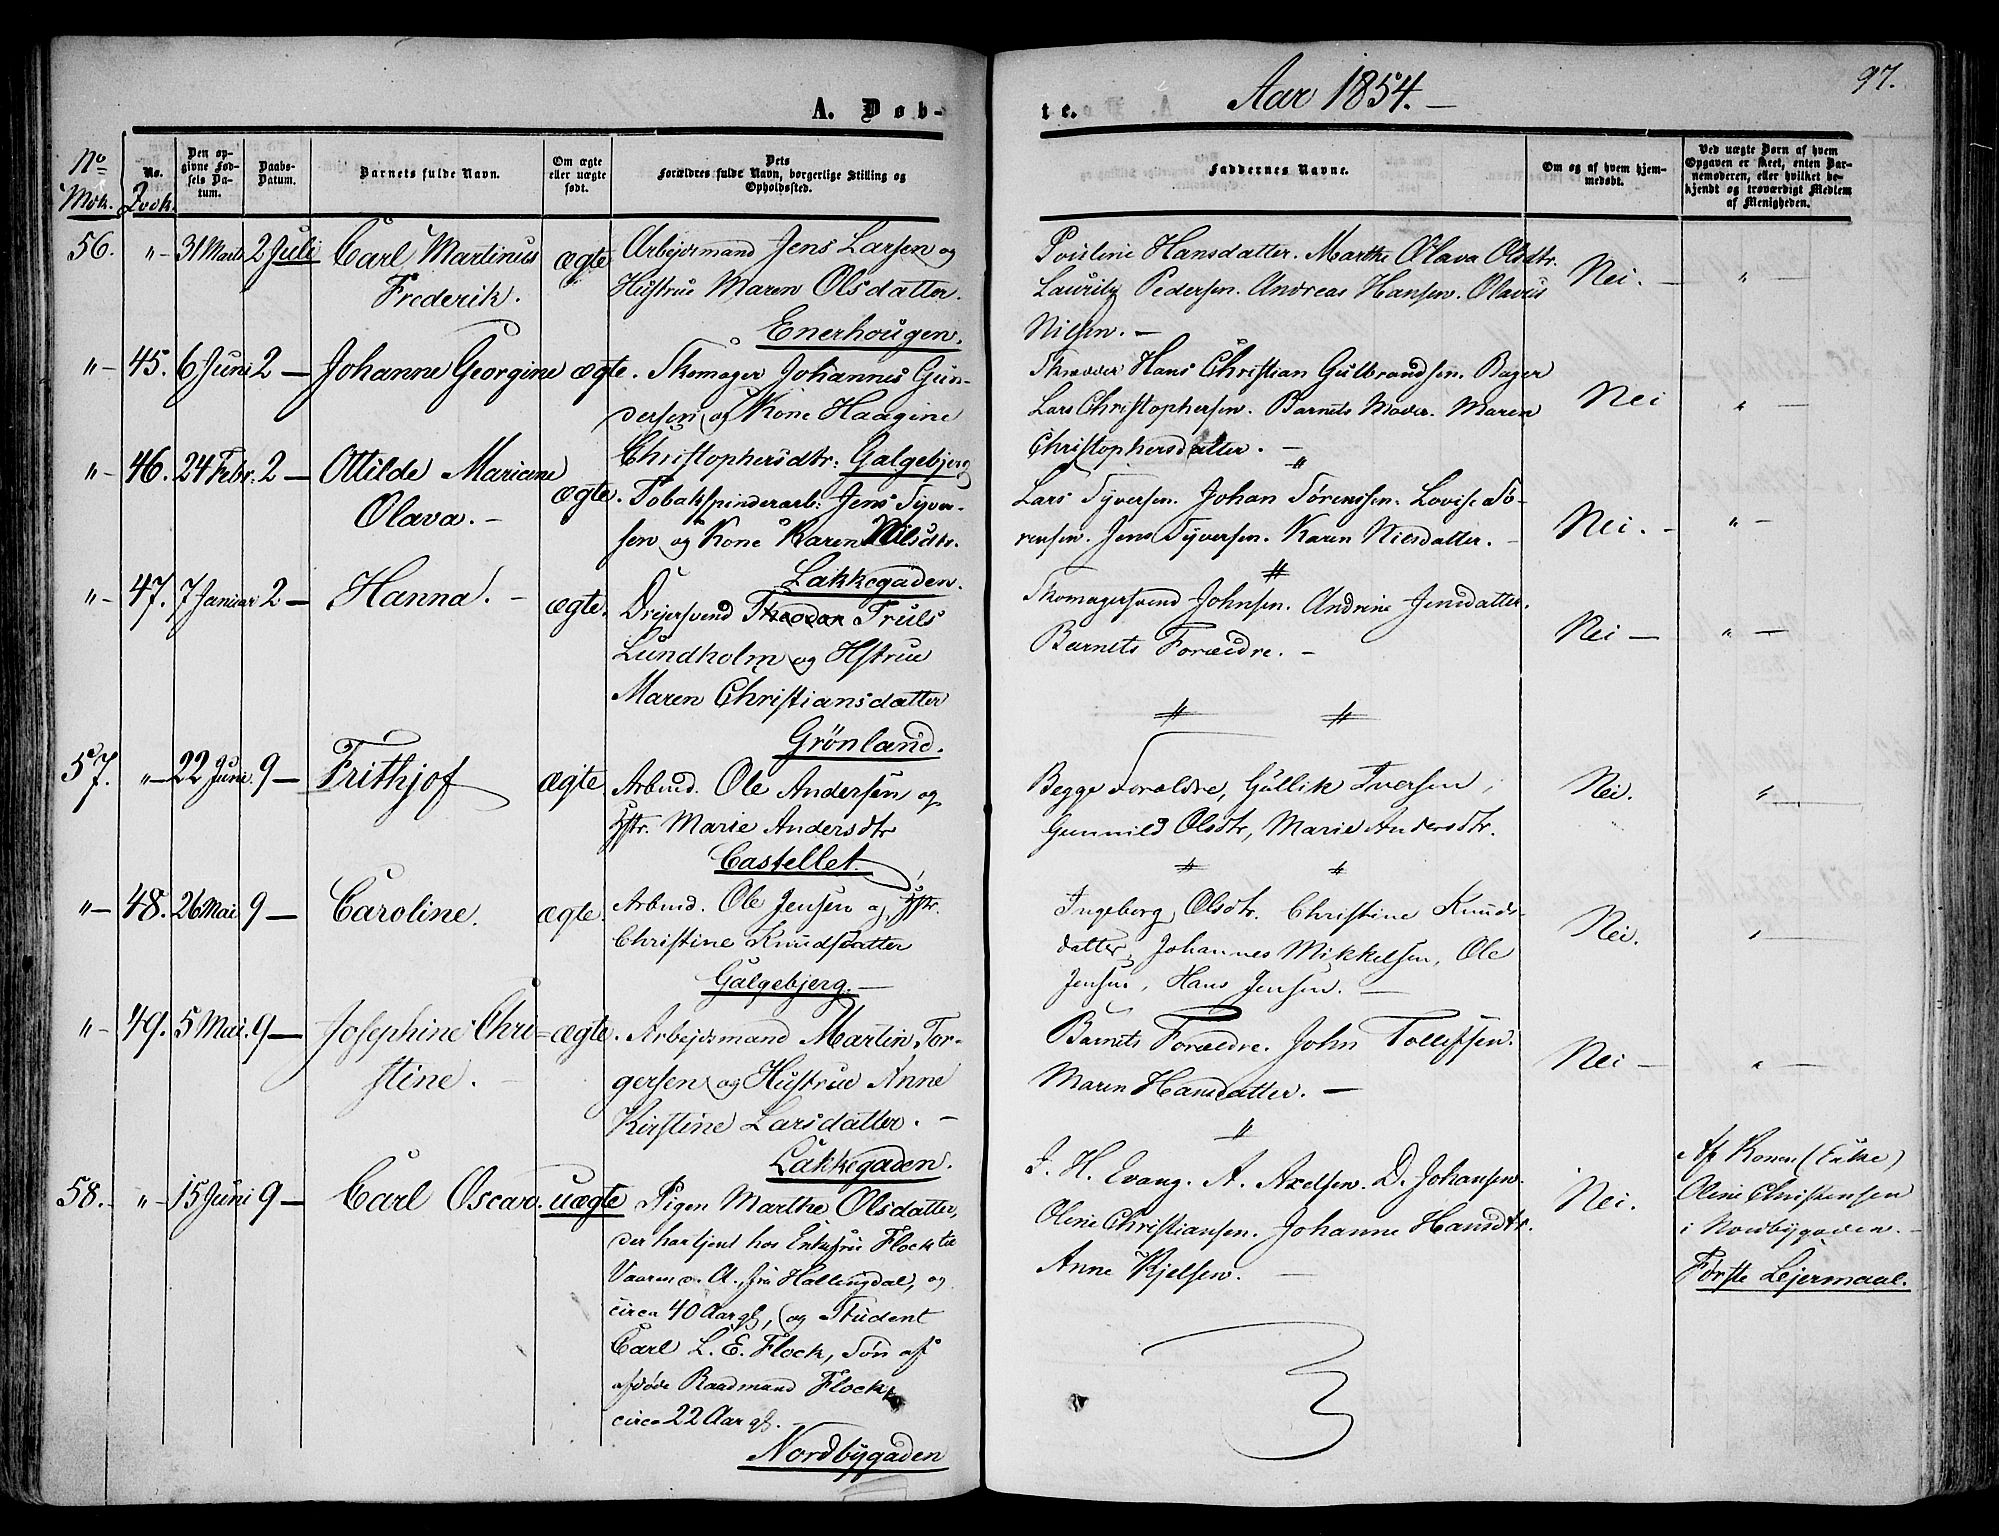 A. Døb-
No
Mdk.
No.
Qvdk.
Den op-
givne Fød-
sels Da-
tum.
Daabs-
Datum.
Barnets fulde Navn.
Om ægte
eller uægte
født.
Dets
Forældres fulde Navn, borgerlige Stilling og
Opholdssted.
56. " 31 Marts 2 Juli Carl Martinus ægte Arbejdsmand Jens Larsen og
Frederik. Hustrue Maren Olsdatter.
Enerhougen.
" 45. 6 Juni 2 — Johanne Georgine ægte. Skomager Johannes Gun-
dersen og Kone Haagine
Christophersdtr: Galgebjerg
" 46. 24 Febr. 2 — Ottilde Mariane ægte. Tobakspinderarb: Jens Syver-
Olava. — sen og Kone Karen Nilsdtr.
Lakkegaden.
" 47. 7 Januar 2 — Hanna. — ægte. Drejersvend Theodor Truls
Lundholm og Hstrue
Maren Christiansdatter
Grönland.
57. " 22 Juni. 9 — Frithjof ægte Arbmd. Ole Andersen og
Hstr. Marie Andersdtr
Castellet.
" 48. 26 Mai 9 — Caroline. ægte. Arbmd. Ole Jensen og Hstr.
Christine Knudsdatter
Galgebjerg. —
" 49. 5 Mai. 9 — Josephine Chri- ægte. Arbejdsmand Martin Tor-
stine. — gersen og Hustrue Anne
Kirstine Larsdatter. —
Lakkegaden.
58. " 15 Juni 9 — Carl Oscar. uægte Pigen Marthe Olsdatter,
der har tjent hos Enkefru Flock til
Vaaren d. A., fra Hallingdal, og
circa 40 Aar gl, og Student
Carl L. E. Flock, Søn af
afdøde Raadmand Flock,
circa 22 Aar gl.
Nordbygaden
te.
Aar 1854. —
97.
Faddernes Navne.
Om og af hvem hjem-
medøbt.
Ved uægte Børn af hvem
Opgaven er skeet, enten Bar-
nemoderen, eller hvilket be-
kjendt og troværdigt Medlem
af Menigheden.
Hansdatter. Marthe Olava Olsdtr.
Lauritz Pedersen. Andreas Hansen. Olavus Nei. — " —
Nilsen. —
Skrædder Hans Christian Gulbrandsen. Bager
Lars Christophersen. Barnets Moder. Maren Nei " —
Christophersdatter. —
Lars Syversen. Johan Sørenssen. Lovise Sö-
rensen. Jens Syversen. Karen Nilsdatter. — Nei. — " —
Skomagersvend Johnsen. Andrine Jensdatter.
Barnets Forældre. — Nei — " —
Begge Forældre, Gullik Iversen, Nei. "
Gunnild Olsdtr, Marie Andersdtr.
Ingeborg Olsdtr. Christine Knuds-
datter, Johannes Mikkelsen, Ole Nei. "
Jensen, Hans Jensen. —
Barnets Forældre. John Tollefsen.
Maren Hansdatter. — Nei — " —
J. H. Evang. A. Axelsen. D. Johansen.
Oline Christiansen. Johanne Hansdtr. Nei.
Anne Kjelsen. —
Af Konen (Enke)
Oline Christensen
i Nordbygaden. —
Første Lejermaal.